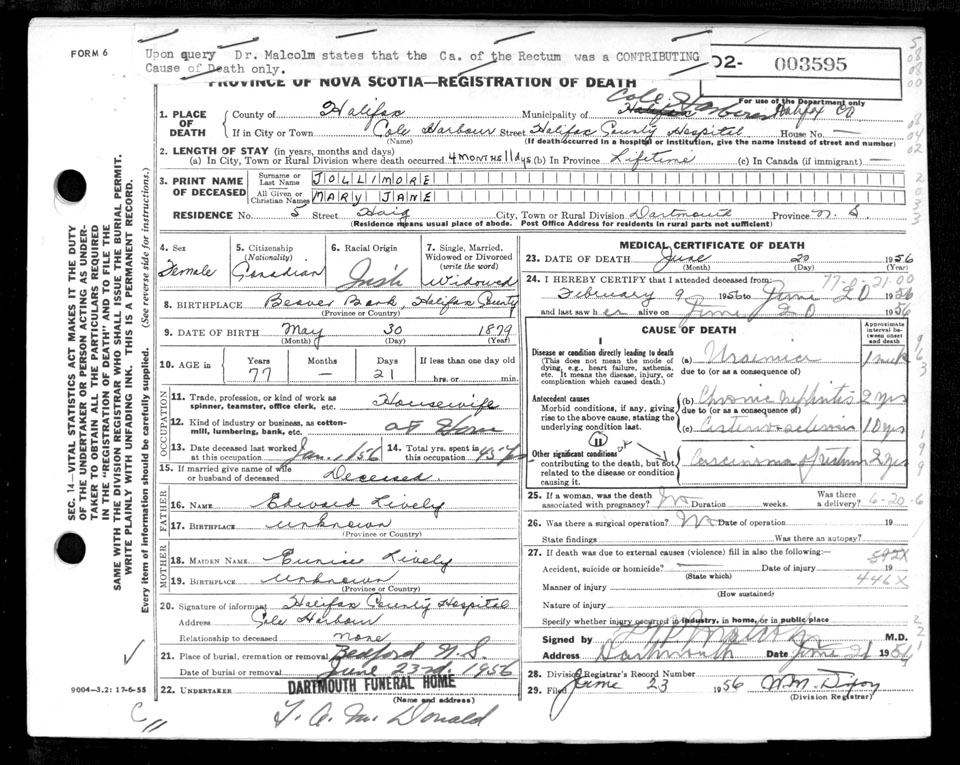 FORM 6
Upon query Dr. Malcolm states that the Ca. of the Rectum was a CONTRIBUTING
Cause of Death only.
02- 003595
PROVINCE OF NOVA SCOTIA—REGISTRATION OF DEATH
For use of the Department only
1. PLACE OF DEATH
County of Halifax Municipality of Cole Harbour Halifax Co
If in City or Town Cole Harbour Street Halifax County Hospital House No. —
(Name) (If death occurred in a hospital or institution, give the name instead of street and number)
2. LENGTH OF STAY (in years, months and days)
(a) In City, Town or Rural Division where death occurred 4 months 11 dys (b) In Province Lifetime (c) In Canada (if immigrant) —
3. PRINT NAME OF DECEASED
Surname or Last Name JOLLIMORE
All Given or Christian Names MARY JANE
RESIDENCE No. 5 Street Haig City, Town or Rural Division Dartmouth Province N. S.
(Residence means usual place of abode. Post Office Address for residents in rural parts not sufficient)
4. Sex Female
5. Citizenship (Nationality) Canadian
6. Racial Origin Irish
7. Single, Married, Widowed or Divorced (write the word) Widowed
8. BIRTHPLACE Beaver Bank, Halifax County
(Province or Country)
9. DATE OF BIRTH May 30 1879
(Month) (Day) (Year)
10. AGE in Years Months Days If less than one day old
77 — 21 hrs. or min.
OCCUPATION
11. Trade, profession, or kind of work as spinner, teamster, office clerk, etc. Housewife
12. Kind of industry or business, as cotton-mill, lumbering, bank, etc. at Home
13. Date deceased last worked at this occupation Jan. 1956
14. Total yrs. spent in this occupation 45 yrs
15. If married give name of wife or husband of deceased Deceased
FATHER
16. NAME Edward Lively
17. BIRTHPLACE Unknown
(Province or Country)
MOTHER
18. MAIDEN NAME Eunice Lively
19. BIRTHPLACE Unknown
(Province or Country)
20. Signature of informant Halifax County Hospital
Address Cole Harbour
Relationship to deceased none
21. Place of burial, cremation or removal Bedford N.S.
Date of burial or removal June 23rd 1956
22. UNDERTAKER DARTMOUTH FUNERAL HOME
(Name and address)
T. A. Mc Donald
MEDICAL CERTIFICATE OF DEATH
23. DATE OF DEATH June 20 1956
(Month) (Day) (Year)
24. I HEREBY CERTIFY that I attended deceased from:
77-0-21-00
February 9 1956 to June 20 1956
and last saw her alive on June 20 1956
CAUSE OF DEATH
Approximate interval between onset and death
I
Disease or condition directly leading to death
(This does not mean the mode of dying, e.g., heart failure, asthenia, etc. It means the disease, injury, or complication which caused death.)
(a) Uraemia 1 week
due to (or as a consequence of)
Antecedent causes
Morbid conditions, if any, giving rise to the above cause, stating the underlying condition last.
(b) Chronic nephritis 2 yrs
due to (or as a consequence of)
(c) Arteriosclerosis 10 yrs
II
Other significant conditions contributing to the death, but not related to the disease or condition causing it.
Carcinoma of rectum 2 yrs
25. If a woman, was the death associated with pregnancy? No Duration weeks. Was there a delivery?
6-20-6
26. Was there a surgical operation? No Date of operation 19
State findings Was there an autopsy?
27. If death was due to external causes (violence) fill in also the following:—
592X
Accident, suicide or homicide? — Date of injury 19
(State which)
446X
Manner of injury
(How sustained)
Nature of injury
Specify whether injury occurred in industry, in home, or in public place
Signed by M.D.
Address Dartmouth Date June 21 1956
28. Division Registrar's Record Number
29. Filed June 23 1956
(Division Registrar)
SEC. 14—VITAL STATISTICS ACT MAKES IT THE DUTY
OF THE UNDERTAKER OR PERSON ACTING AS UNDER-
TAKER TO OBTAIN ALL THE PARTICULARS REQUIRED
IN THE "REGISTRATION OF DEATH" AND TO FILE THE
SAME WITH THE DIVISION REGISTRAR WHO SHALL ISSUE THE BURIAL PERMIT.
WRITE PLAINLY WITH UNFADING INK. THIS IS A PERMANENT RECORD.
Every item of information should be carefully supplied. (See reverse side for instructions.)
9004-3.2: 17-6-55